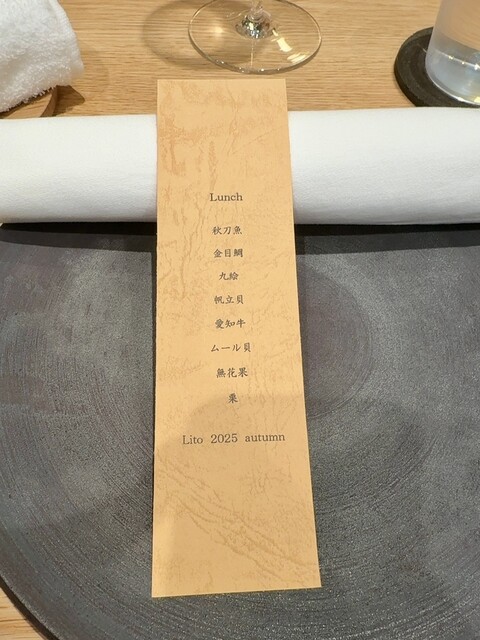 Lunch
秋刀魚
金目鯛
九絵
帆立貝
愛知牛
ムール貝
無花果
栗
Lito 2025 autumn